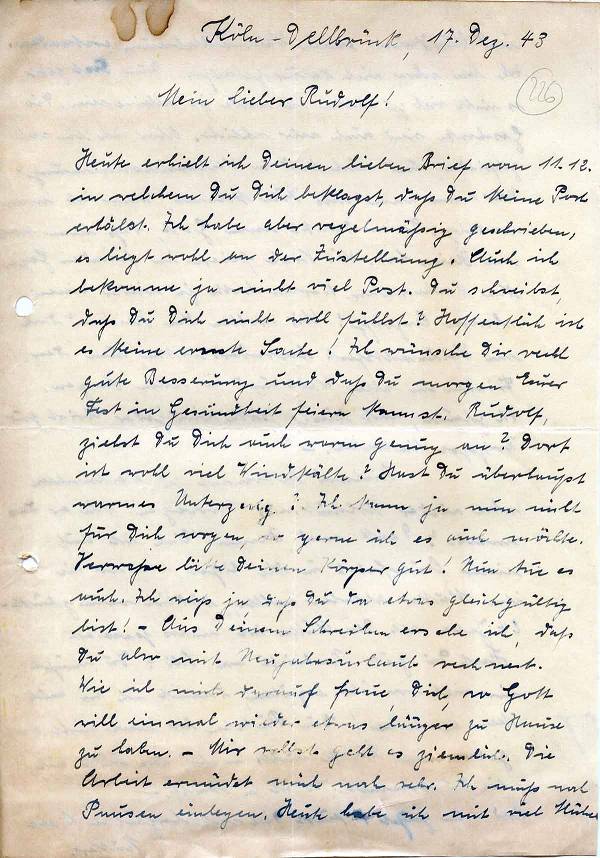 Köln-Dellbrück, 17. Dez. 43
226
Mein lieber Rudolf!
Heute erhielt ich Deinen lieben Brief vom 11.12.
in welchem Du Dich beklagst, daß Du keine Post
erhälst. Ich habe aber regelmäßig geschrieben,
es liegt wohl an der Zustellung. Auch ich
bekomme ja nicht viel Post. Du schreibst,
daß Du Dich nicht wohl fühlst? Hoffentlich ist
es keine ernste Sache! Ich wünsche Dir recht
gute Besserung und daß Du morgen Euer
Fest in Gesundheit feiern kannst. Rudolf,
ziehst Du Dich auch warm genug an? Dort
ist wohl viel Windkälte? Hast Du überhaupt
warmes Unterzeug? Ich kann ja nun nicht
für Dich sorgen, so gerne ich es auch möchte.
bitte Deinen Körper gut! Nun tue es
auch. Ich weiß ja, daß Du da etwas gleichgültig
bist! - Aus Deinem Schreiben ersehe ich, daß
Du also mit Neujahrsurlaub rechnest.
Wie ich mich darauf freue, Dich, so Gott
will einmal wieder etwas länger zu Hause
zu haben. - Mir selbst geht es ziemlich. Die
Arbeit ermüdet mich noch sehr. Ich muß noch
Pausen einlegen. Heute habe ich mit viel Mühe